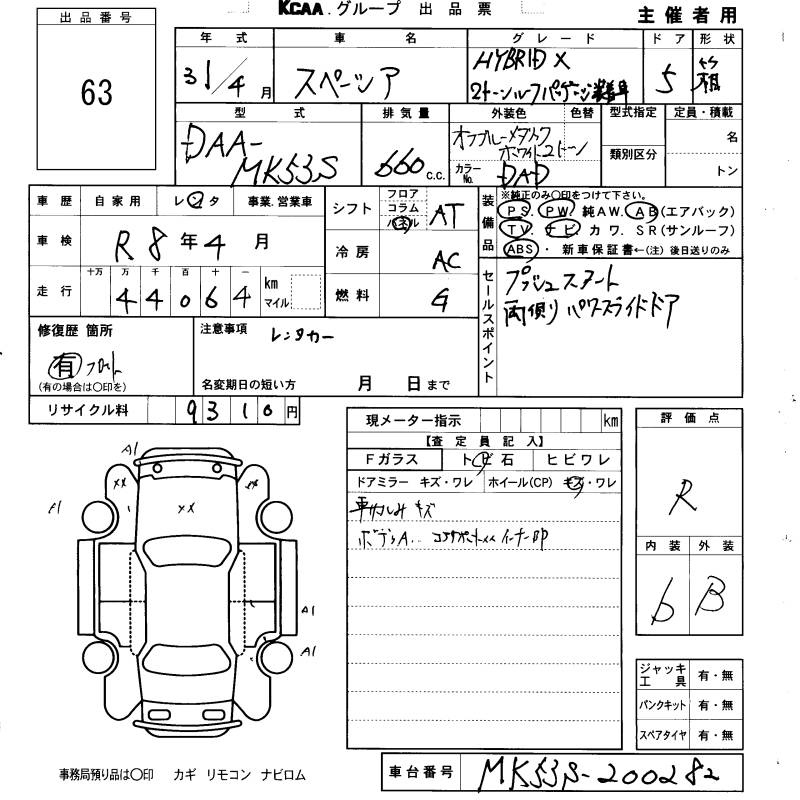 KCAA.グループ 出品票
主催者用
出品番号
63
年式 車名 グレード ドア 形状
31/4月 スペーシア HYBRID X 5 箱
型式 排気量 外装色 色替 型式指定 定員・積載
DAA-
MK53S
660 c.c.
ホワイト2トーン
カラーNo. DAD
類別区分
名
トン
車歴 自家用 レンタ 事業.営業車
車検 R8年4月
走行 十万 万 千 百 十 一
4 4 0 6 4 km マイル
シフト フロア コラム パネル AT
冷房 AC
燃料 G
装備品
※純正のみ○印をつけて下さい。
PS. PW. 純AW. AB(エアバック)
TV. ナビ カワ. SR(サンルーフ)
ABS ・ 新車保証書←(注) 後日送りのみ
セールスポイント
プッシュスタート
両側リパワースライドドア
修復歴 箇所
有 フロント
(有の場合は○印を)
注意事項 レンタカー
名変期日の短い方 月 日まで
リサイクル料 9310円
現メーター指示 km
【査定員記入】
Fガラス トビ石 ヒビワレ
ドアミラー キズ・ワレ ホイール(CP) キズ・ワレ
キズ
評価点
R
内装 外装
6 B
A1
××
××
A1
A1
A1
ジャッキ工具 有・無
パンクキット 有・無
スペアタイヤ 有・無
事務局預り品は○印 カギ リモコン ナビロム
車台番号 MK53S-200282